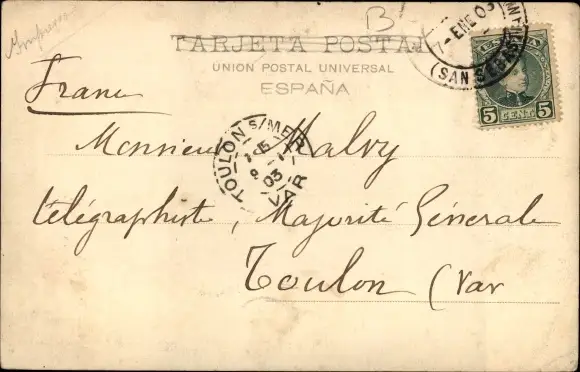 B
Imprimé
TARJETA POSTAL
UNION POSTAL UNIVERSAL
ESPAÑA
7-ENE 03
(SAN SEBAS
ESPAÑA
5 CENT. 5
France
Monsieur Malvy
TOULON S/MER
VAR
03
télégraphiste, Majorité Générale
Toulon (Var